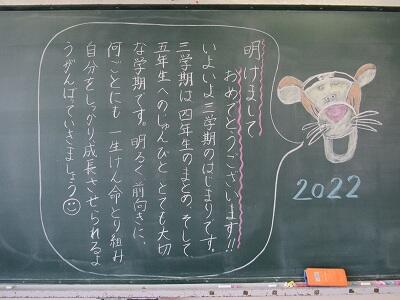 明けまして
おめでとうございます!!
いよいよ三学期のはじまりです。
三学期は四年生のまとめ、そして
五年生へのじゅんびと とても大切
な学期です。明るく、前向きに、
何ごとにも 一生けん命とり組み
自分をしっかり成長させられるよ
うがんばっていきましょう
2022